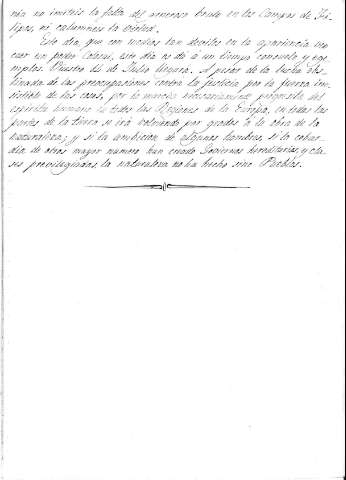 no imiteis la falta del virtuoso Bruto en los Campos de Fi-
lipos, ni calumnieis la virtud.
Este dia, que con medios tan debiles en la apariencia
un poder Colosal, este dia os dá á un tiempo consuelo y exe-
mplos. Nuestro 14 de Julio llegará. A pesar de la lucha obs-
tinada de las preocupaciones contra la justicia por la fuerza irre-
sistible de las cosas, por la marcha necesariamente progresiva del
espiritu humano, todas las Regiones de la Europa, en todas las
partes de la tierra se irá volviendo por grados á la obra de la
naturaleza; y si la ambicion de algunos hombres, si la cobar-
dia de otros mayor numero han creado Gobiernos hereditarios, y cla-
ses previlegiadas, la naturaleza no ha hecho sino Pueblos.